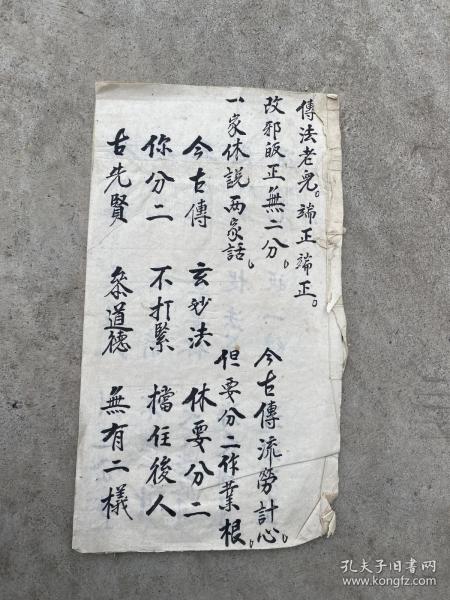 傳法老皃。端正端正。
改邪皈正無二分。今古傳流勞計心。
一家休説兩家話。但要分二作業根。
今古傳 玄妙法 休要分二
你分二 不打緊 擋住後人
古先賢 叅道德 無有二樣
孔夫子旧书网
www.kongfz.com